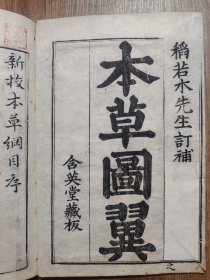 稻若水先生訂補
本草圖翼
含英堂藏板
新校本草綱目序